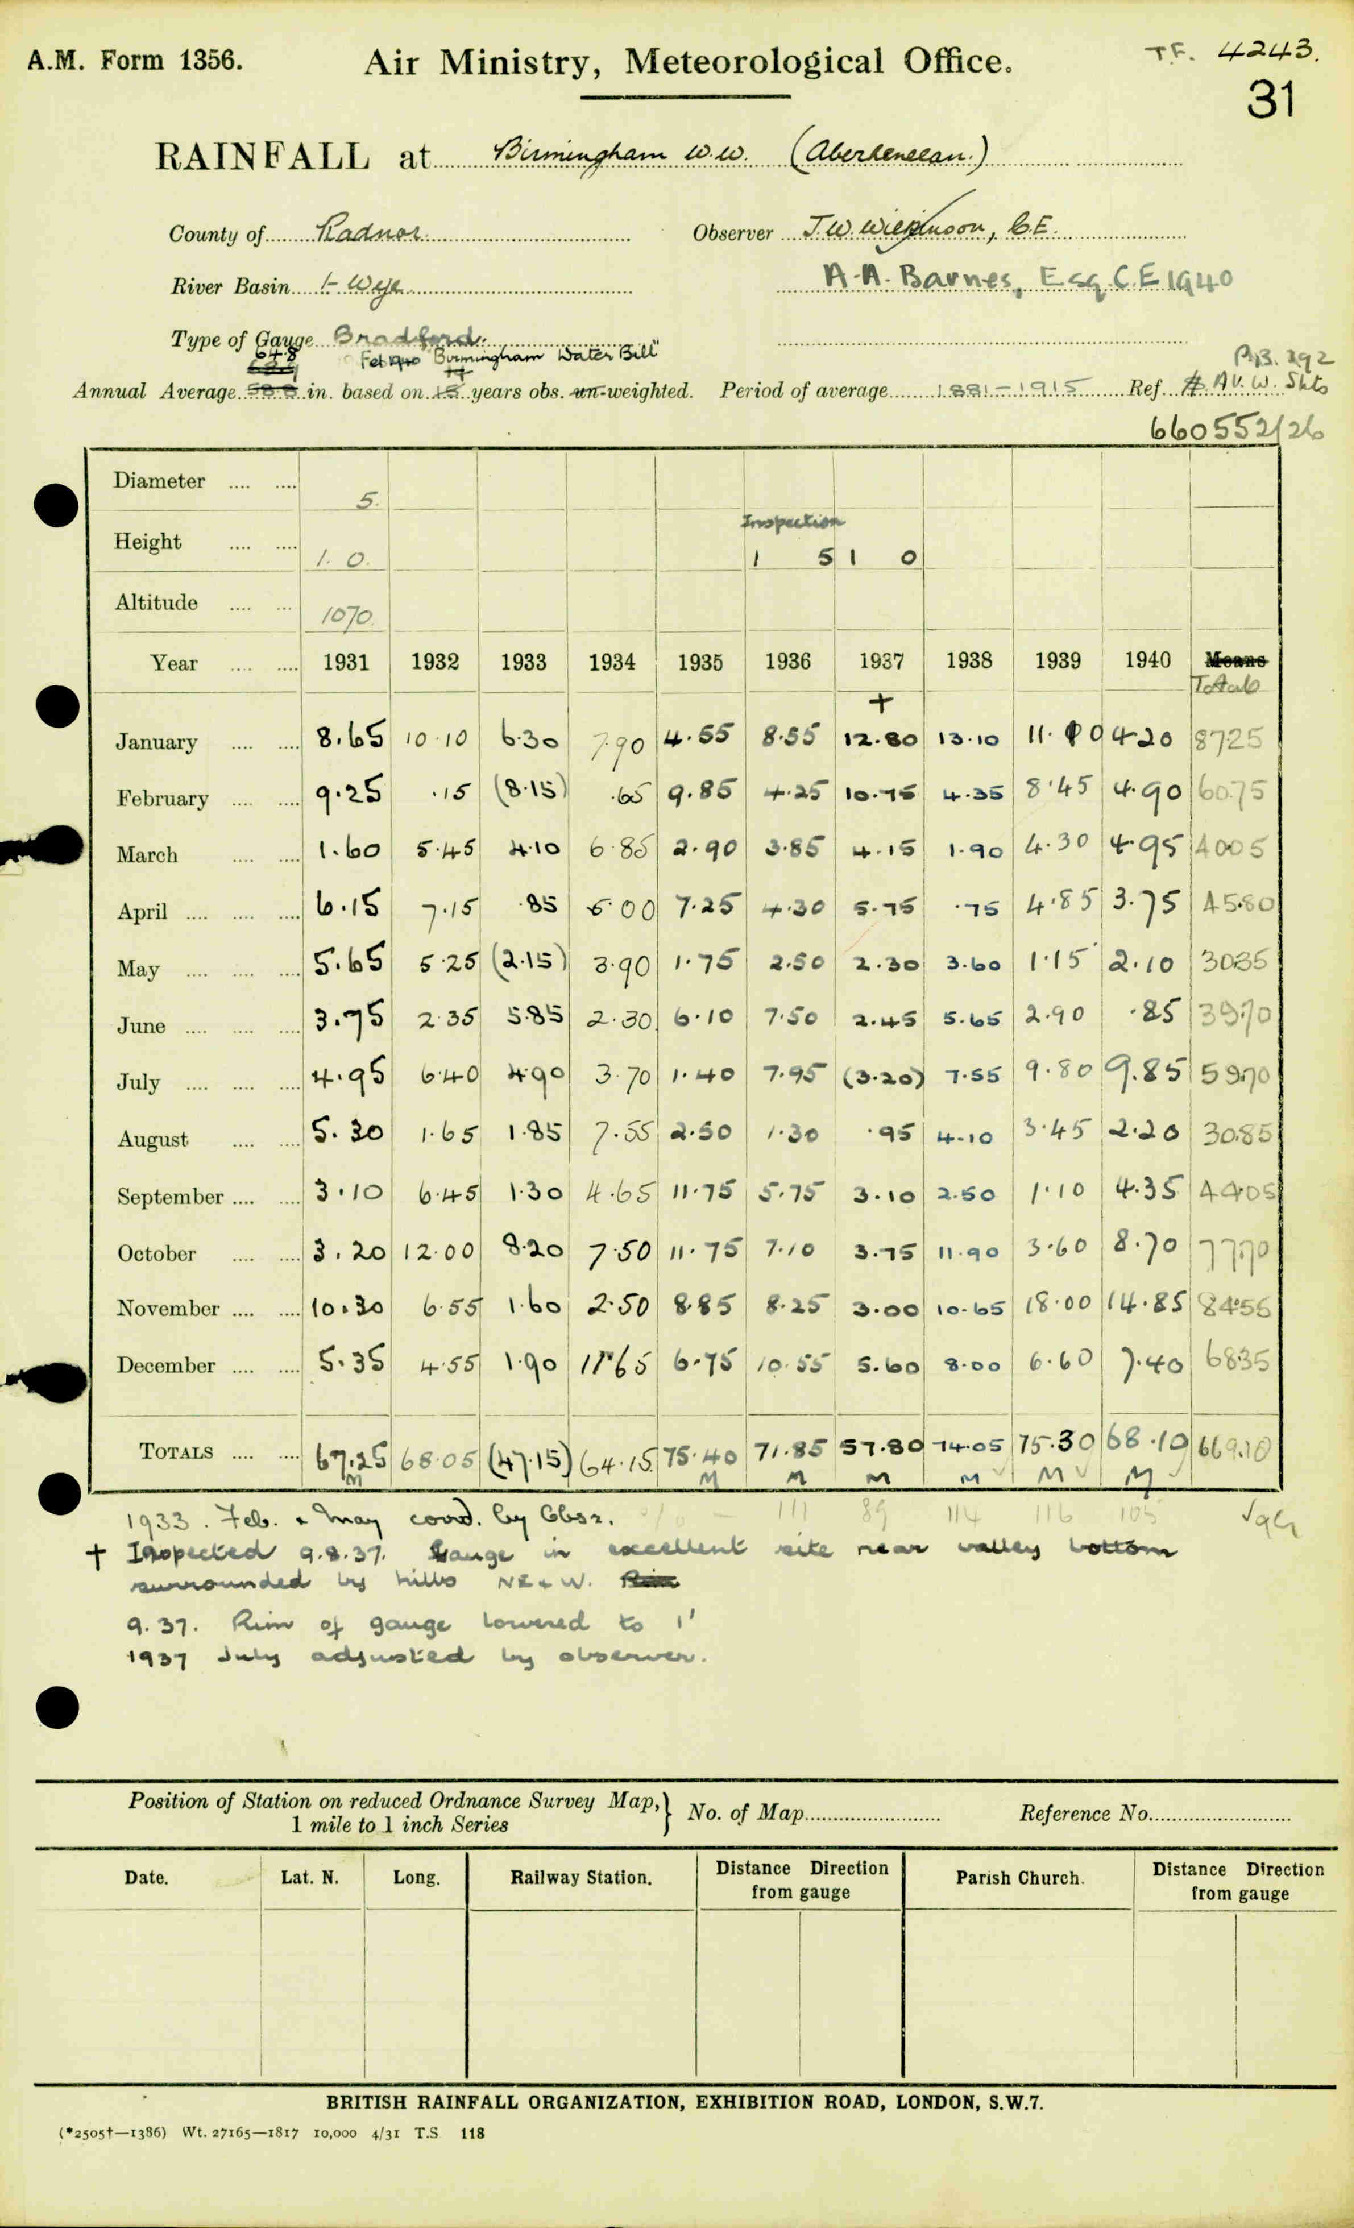 A.M. Form 1356.
Air Ministry, Meteorological Office.
T.F. 4243.
31
RAINFALL at Birmingham W.W.
County of Radnor
Observer J.W. Wilkinson, C.E.
River Basin Wye
A.A. Barnes, Esq. C.E 1940
Type of Gauge Bradford.
648
Feb 1940 "Birmingham Water Bill"
Annual Average 58.8 in. based on 15 years obs. un-weighted. Period of average 1881-1915 Ref. AV.W. Shts
660552/26
Diameter 5.
Inspection
Height 1. 0. 1 5 1 0
Altitude 1070.
Year 1931 1932 1933 1934 1935 1936 1937 1938 1939 1940 Means
Totals
+
January 8.65 10.10 6.30 7.90 4.55 8.55 12.80 13.10 11.10 4.20 8725
February 9.25 .15 (8.15) .65 9.85 4.25 10.75 4.35 8.45 4.90 6075
March 1.60 5.45 4.10 6.85 2.90 3.85 4.15 1.90 4.30 4.95 4005
April 6.15 7.15 .85 5.00 7.25 4.30 5.75 .75 4.85 3.75 4580
May 5.65 5.25 (2.15) 3.90 1.75 2.50 2.30 3.60 1.15 2.10 3035
June 3.75 2.35 5.85 2.30 6.10 7.50 2.45 5.65 2.90 .85 3970
July 4.95 6.40 4.90 3.70 1.40 7.95 (3.20) 7.55 9.80 9.85 5970
August 5.30 1.65 1.85 7.55 2.50 1.30 .95 4.10 3.45 2.20 3085
September 3.10 6.45 1.30 4.65 11.75 5.75 3.10 2.50 1.10 4.35 4405
October 3.20 12.00 8.20 7.50 11.75 7.10 3.75 11.90 3.60 8.70 7770
November 10.30 6.55 1.60 2.50 8.85 8.25 3.00 10.65 18.00 14.85 8455
December 5.35 4.55 1.90 11.65 6.75 10.55 5.60 8.00 6.60 7.40 6835
TOTALS 67.25 68.05 (47.15) 64.15 75.40 71.85 57.80 74.05 75.30 68.10 669.10
M M M M M M M
% 111 89 114 116 105
1933. Feb. & May coord. by Obsr.
+ Inspected 9.8.37. Gauge in excellent site near valley bottom
surrounded by hills NE & W.
9.37. Rim of gauge lowered to 1'
1937 July adjusted by observer.
Position of Station on reduced Ordnance Survey Map,} No. of Map Reference No.
1 mile to 1 inch Series
Date. Lat. N. Long. Railway Station. Distance Direction from gauge Parish Church. Distance Direction from gauge
BRITISH RAINFALL ORGANIZATION, EXHIBITION ROAD, LONDON, S.W.7.
(*2505†—1386) Wt. 27165—1817 10,000 4/31 T.S. 118